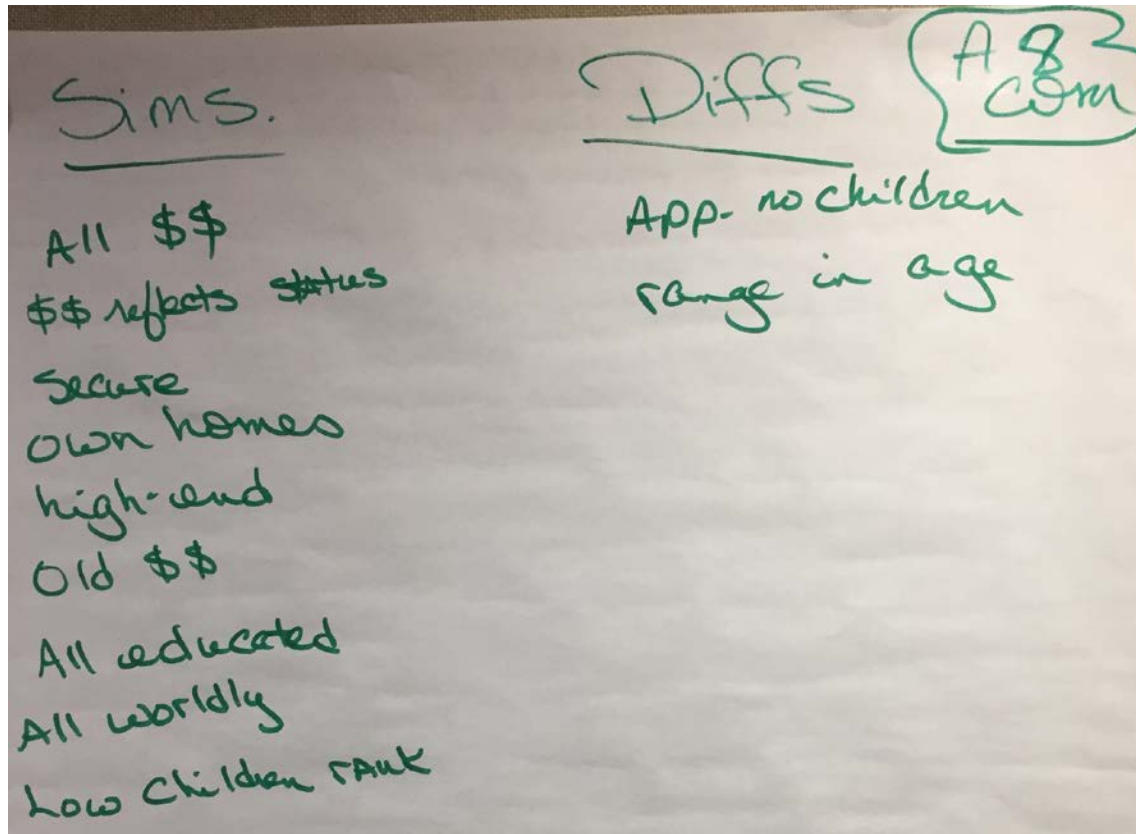 Sims.
All $$
$$ reflects status
Secure
own homes
high-end
Old $$
All educated
All worldly
Low Children rank
Diffs
App- no children
range in age
A 8 2
Com